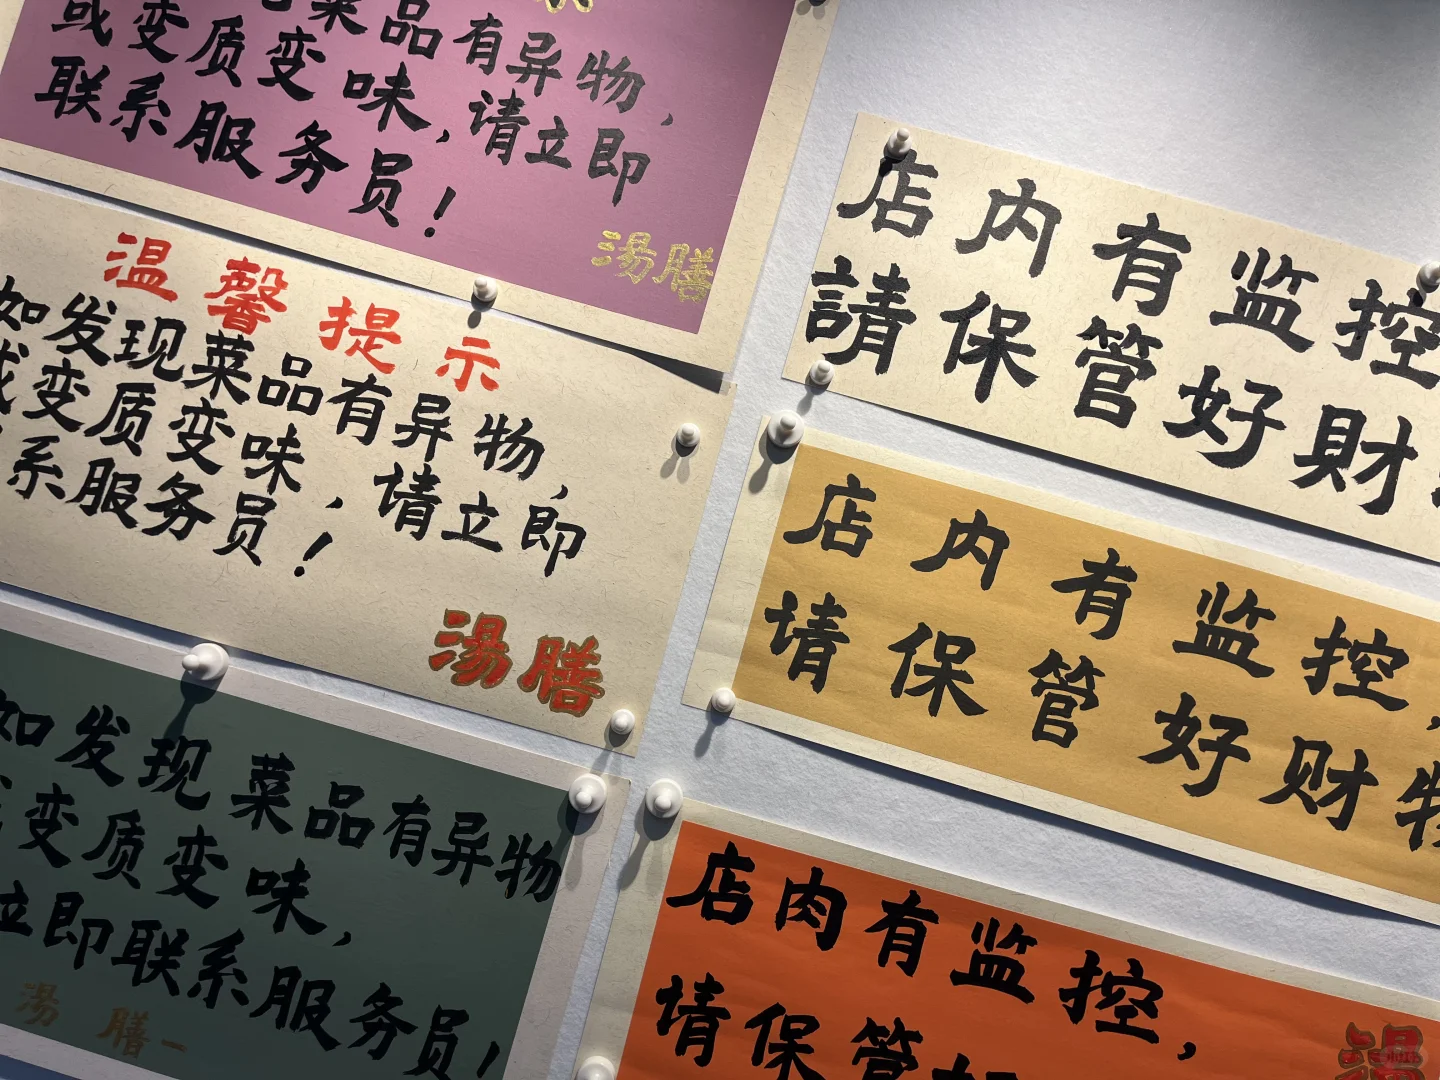 菜品有异物，
或变质变味，请立即
联系服务员！
湯膳
温馨提示
如发现菜品有异物，
或变质变味，请立即
系服务员！
湯膳
如发现菜品有异物
变质变味，
立即联系服务员！
湯膳
店内有监控
請保管好財
店内有监控，
请保管好财物
店肉有监控，
请保管好
湯